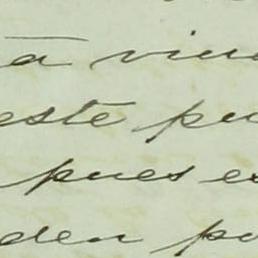 a viu
este pu
pues es
den po